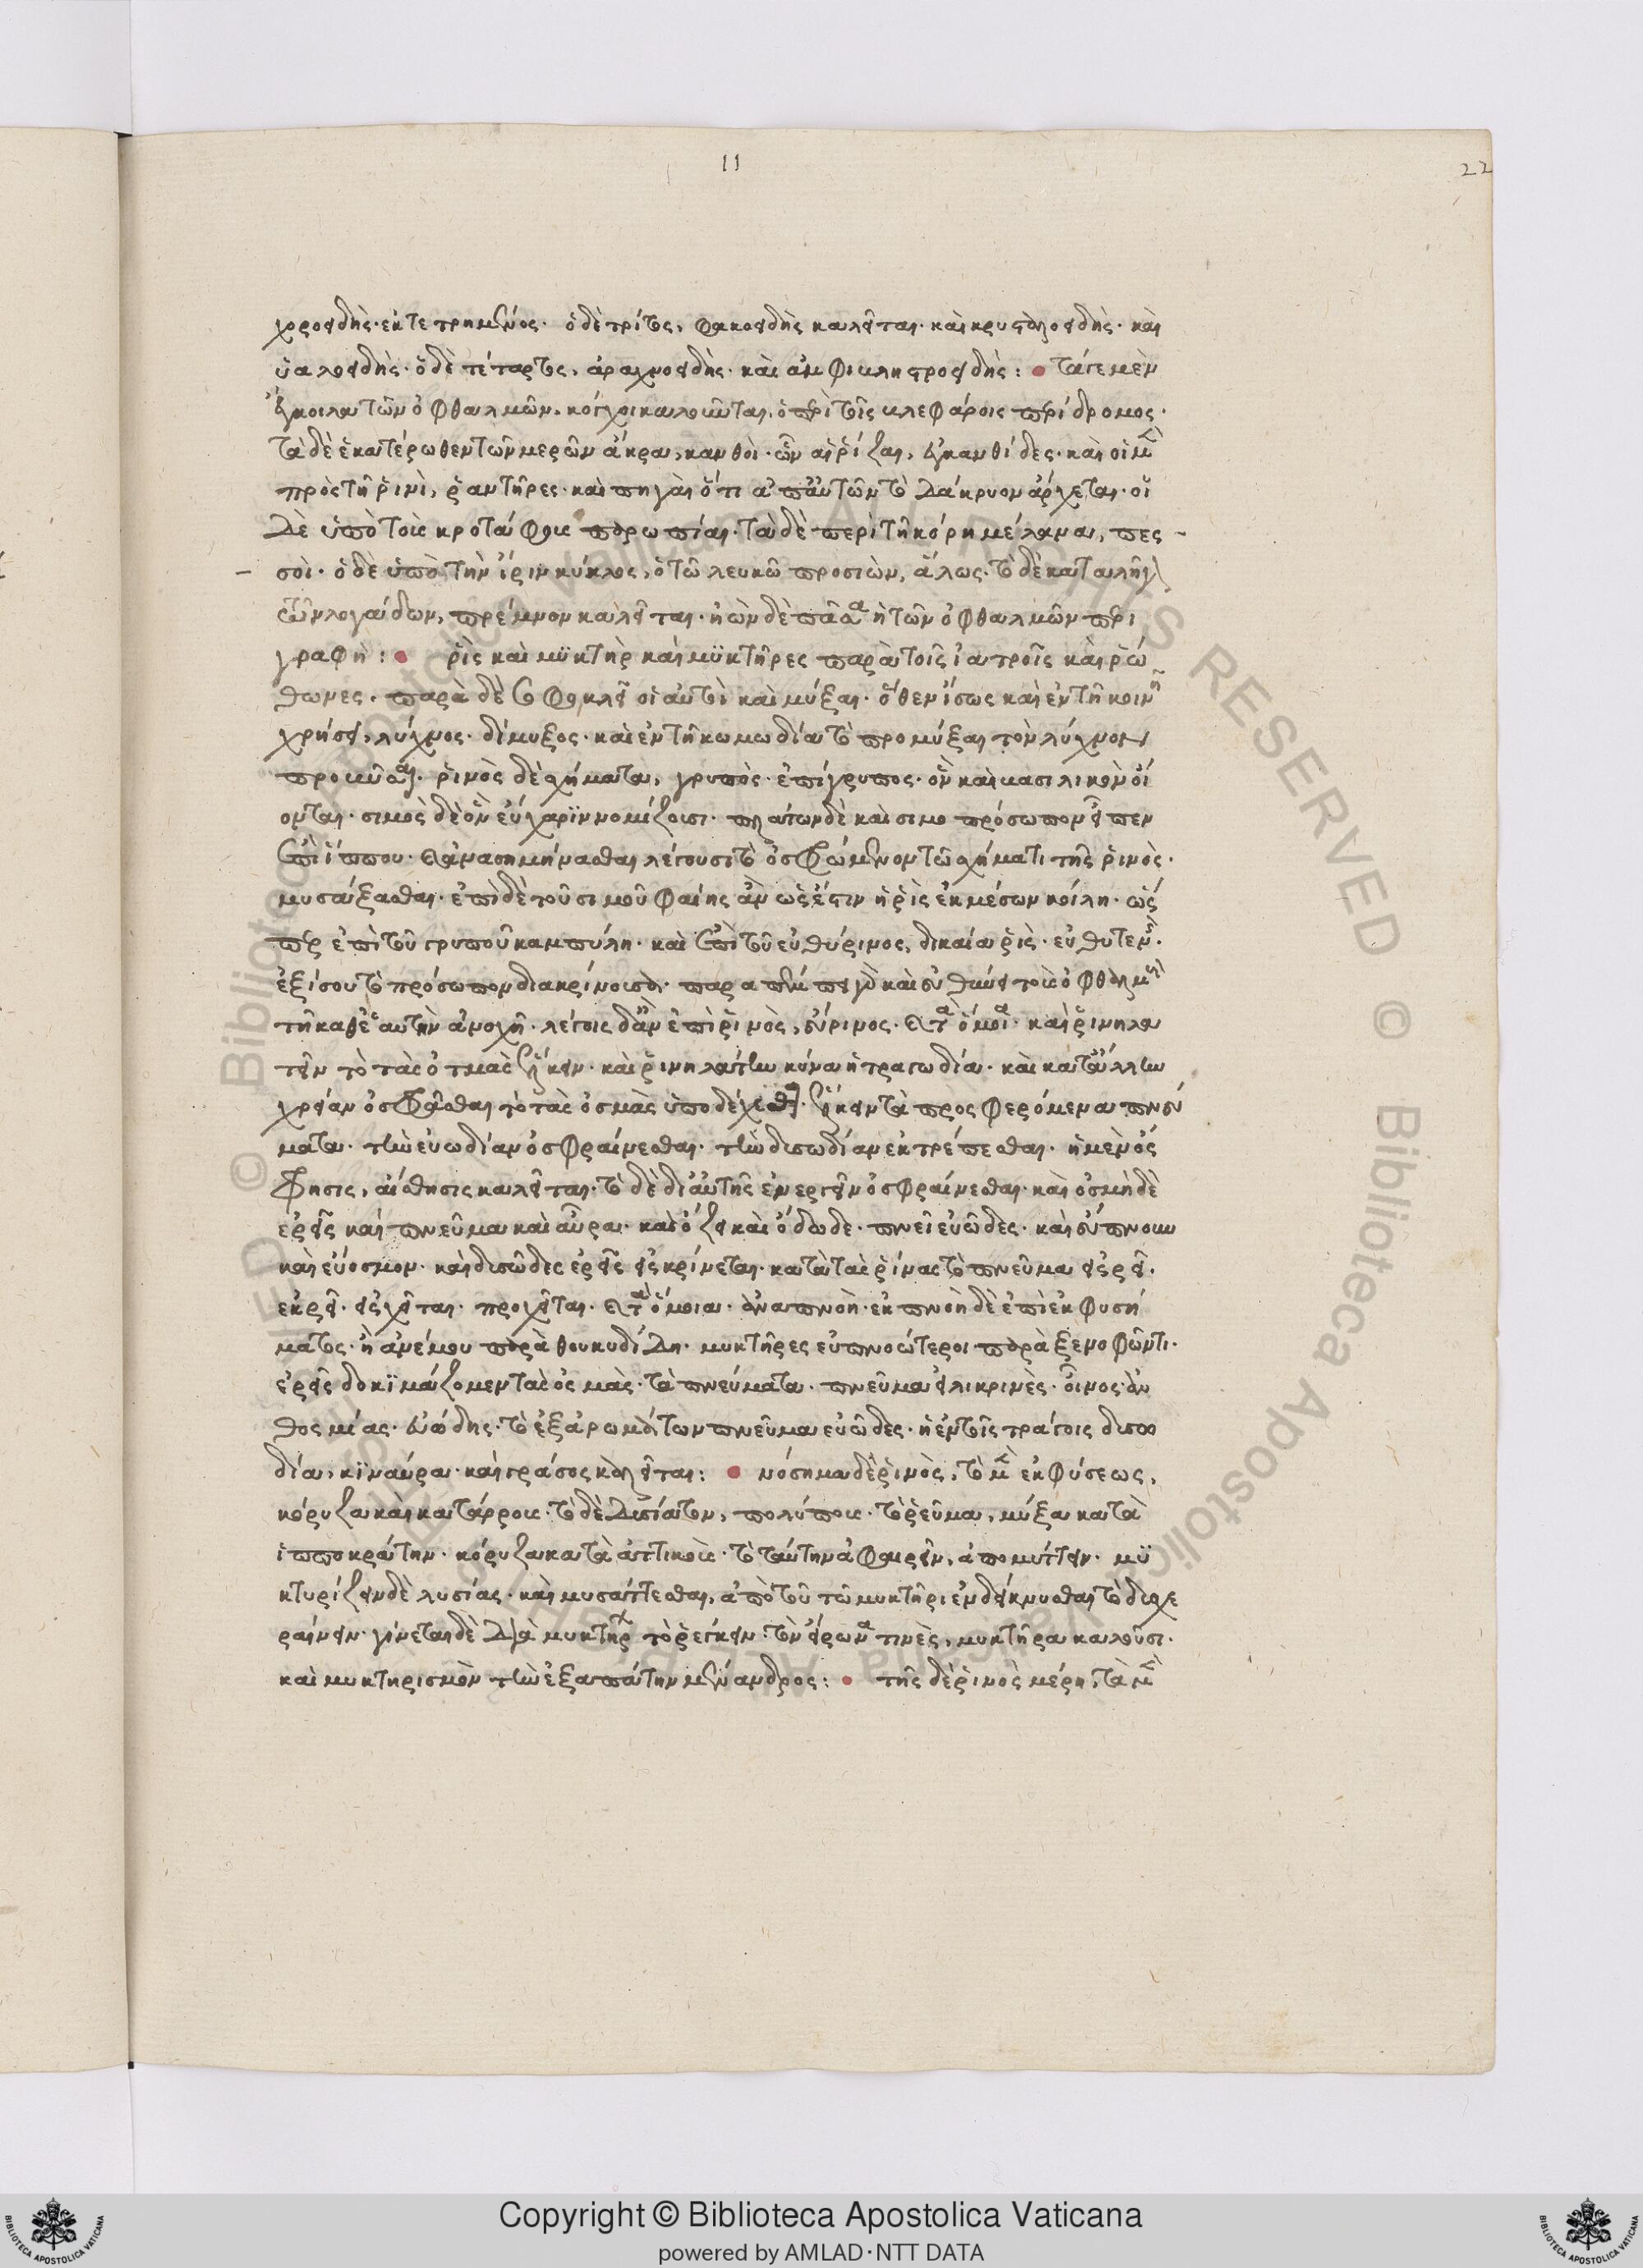 11
22
χοροειδὴς· ἐκτετρημένος· ὁ δὲ τρίτος, φακοειδὴς καλεῖται· καὶ κρυσταλοειδής· καὶ
ὑαλοειδής· ὁ δὲ τέταρτος, ἀραχνοειδής· καὶ ἀμφιβληστροειδής: τά γε μὲν
ἔγκοιλα τῶν ὀφθαλμῶν, κοῖλοι καλοῦνται, ὁ περὶ τοῖς βλεφάροις περίδρομος·
τὰ δὲ ἑκατέρωθεν τῶν μερῶν ἄκρα, κανθοί· ὧν αἱ ῥίζαι, ἐγκανθίδες· καὶ οἱ μὲν
πρὸς τῆ ῥινὶ, ῥαντῆρες· καὶ πηγαὶ ὅτι ἀπ' αὐτῶν τὸ δάκρυον ἄρχεται· οἱ
δὲ ὑπὸ τοῖς κροτάφοις παρωπίαι· τὰ δὲ περὶ τῆ κόρη μέλανα, πεσ-
σοί· ὁ δὲ ὑπὸ τὴν ἶριν κύκλος, ὁ τῶ λευκῶ προσιὼν, ἅλως· τὸ δὲ καταλῆγον
τῶν λογάδων, πρέμνον καλεῖται· ἠὼν δὲ πᾶσα ἡ τῶν ὀφθαλμῶν περι
γραφή: ῥὶς καὶ μϋκτὴρ καὶ μϋκτῆρες παρὰ τοῖς ἰατροῖς καὶ ῥώ
θωνες· παρὰ δὲ Σοφοκλεῖ οἱ αὐτοὶ καὶ μύξαι· ὅθεν ἴσως καὶ ἐν τῆ κοινῆ
χρήσει, λύχνος· δίμυξος· καὶ ἐν τῆ κωμωδία τὸ προμύξαι τὸν λύχνον
προβῦσαι· ῥινὸς δὲ σχήματα, γρυπὸς· ἐπίγρυπος· ὃν καὶ βασιλικὸν οἴ
ονται· σιμὸς δὲ ὃν εὔχαρϊν νομίζουσι· πλάτων δὲ καὶ σιμοπρόσωπον εἶπεν
ἐπὶ ἵππου· ἀνασημήνασθαι λέγουσι τὸ ὀσφρώμενον τῶ σχήματι τῆς ῥινὸς·
μυσάξασθαι· ἐπὶ δὲ τοῦ σιμοῦ φαίης ἂν ὡς ἔστιν ἡ ῥὶς ἐκ μέσων κοίλη· ὥσ
περ ἐπὶ τοῦ γρυποῦ καμπύλη· καὶ ἐπὶ τοῦ εὐθύρινος, δικαία ῥὶς· εὐθυτενὴς·
ἐξίσου τὸ πρόσωπον διακρίνουσα· παραπέμπει καὶ εὐθύνει τοῖς ὀφθαλμοῖς
τῆ καθ' ἑαυτὴν ἀνοχῆ· λέγοις δ' ἂν ἐπὶ ῥινὸς, εὔρινος· καὶ τὰ ὅμοια· καὶ ῥινηλα
τεῖν τὸ τὰς ὀτμὰς ἕλκειν· καὶ ῥινηλάτην κύνα ἡ τραγωδία· καὶ κατ' ἄλλην
χρείαν ὀσφρᾶσθαι τὸ τὰς ὀσμὰς ὑποδέχεσθαι· ἕλκειν τὰ προσφερόμενα πνεύ
ματα· τὴν εὐωδίαν ὀσφραίνεσθαι· τὴν δυσωδίαν ἐκτρέπεσθαι· ἡ μὲν ὄσ
φρησις, αἴσθησις καλεῖται· τὸ δὲ δι' αὐτῆς ἐνεργεῖν ὀσφραίνεσθαι· καὶ ὀσμὴ δὲ
ἐρεῖς καὶ πνεῦμα καὶ αὖρα· καὶ ὄζει καὶ ὄδωδε· πνεῖ εὐῶδες· καὶ εὔπνουν
καὶ εὔοσμον· καὶ δυσῶδες ἐρεῖς εἰσκρίνεται· κατὰ τὰς ῥίνας τὸ πνεῦμα εἰσρεῖ·
ἐκρεῖ· εἰσχεῖται· προχεῖται· καὶ τὰ ὅμοια· ἀναπνοὴ· ἐκπνοὴ δὲ ἐπὶ ἐκφυσή
ματος· ἢ ἀνέμου παρὰ θουκυδίδη· μυκτῆρες εὐπνοώτεροι παρὰ ξενοφῶντι·
ἐρεῖς δοκϊμάζομεν τὰς ὀσμὰς· τὰ πνεύματα· πνεῦμα εἰλικρινὲς· οἶνος ἀν
θοσμίας· εὐώδης· τὸ ἐξ ἀρωμάτων πνεῦμα εὐῶδες· ἡ ἐν τοῖς τράγοις δυσω
δία, κϊνάβρα· καὶ γράσος καλεῖται: νόσημα δὲ ῥινὸς, τὸ μὲν ἐκφύσεως,
κόρυζα καὶ κατάρρους· τὸ δὲ δυσίατον, πολύπους· τὸ ῥεῦμα, μύξα κατὰ
ἱπποκράτην· κόρυζα κατὰ ἀττικοὺς· τὸ ταύτην ἀφαιρεῖν, ἀπομύττειν· μϋ
κτυρίζειν δὲ λυσίας· καὶ μυσάττεσθαι, ἀπὸ τοῦ τῶ μυκτῆρι ἐνδείκνυσθαι τὸ δυσχε
ραίνειν· γίνεται δὲ διὰ μυκτῆρος τὸ ῥέγκειν· τὸν εἴρωνα τινὲς, μυκτῆρα καλοῦσι·
καὶ μυκτηρισμὸν τὴν ἐξαπάτην μένανδρος: τῆς δὲ ῥινὸς μέρη, τὰ μὲν